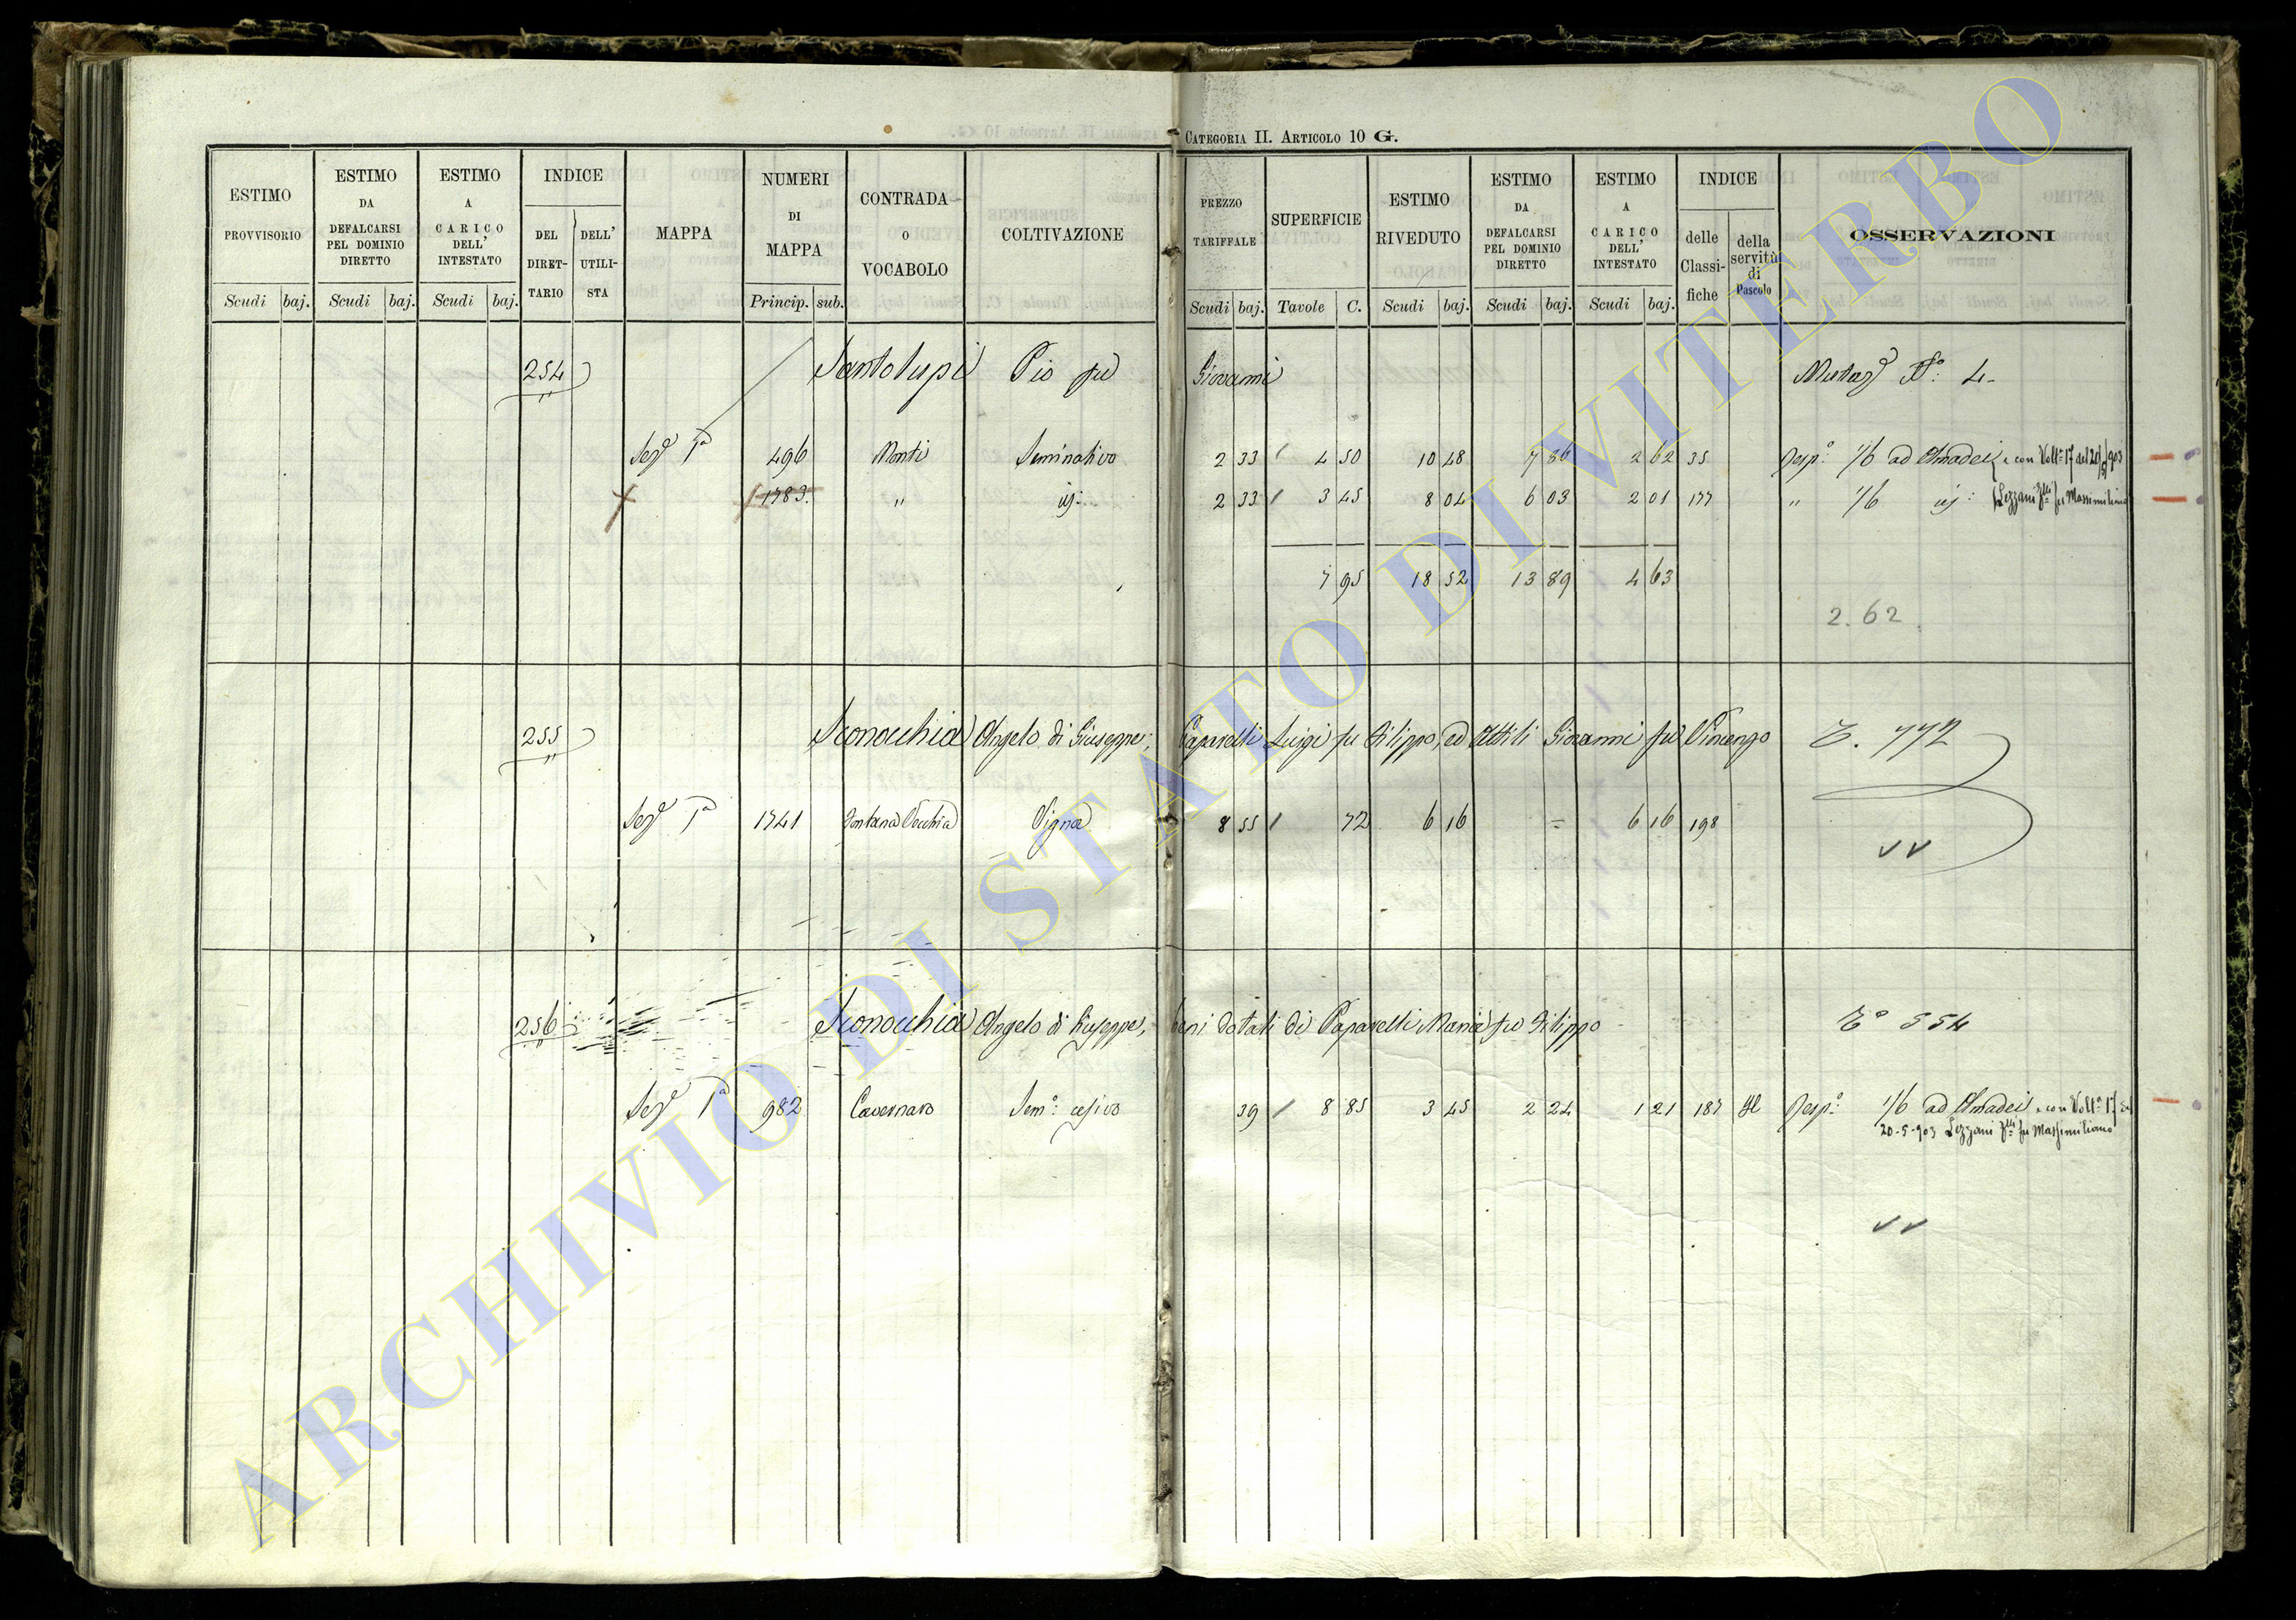 CATEGORIA II. ARTICOLO 10 G.
ESTIMO PROVVISORIO ESTIMO DA DEFALCARSI PEL DOMINIO DIRETTO ESTIMO A CARICO DELL' INTESTATO INDICE DEL DIRET-TARIO DELL' UTILI-STA MAPPA NUMERI DI MAPPA CONTRADA O VOCABOLO COLTIVAZIONE PREZZO TARIFFALE SUPERFICIE ESTIMO RIVEDUTO ESTIMO DA DEFALCARSI PEL DOMINIO DIRETTO ESTIMO A CARICO DELL' INTESTATO INDICE delle Classi-fiche della servitù di Pascolo OSSERVAZIONI
Scudi baj. Scudi baj. Scudi baj. Princip. sub. Scudi baj. Tavole C. Scudi baj. Scudi baj. Scudi baj.
254 Santolupi Pio fu Giovanni No. 4
496 Monti Seminativo 2 33 4 50 10 48 7 86 2 62 35 1/6 ad Amadei e con Volta 17 del 20/5/903
1783 " 2 33 3 45 8 04 6 03 2 01 177 " 1/6 Lezzani flli fu Massimiliano
7 95 18 52 13 89 4 63
2.62
255 Sconocchia Angelo di Giuseppe; Paparelli Luigi fu Filippo, ed Attili Giovanni fu Vincenzo 772
1741 Fontana Vecchia Vigna 8 55 72 6 16 = 6 16 198
256 Sconocchia Angelo di Giuseppe, beni dotali di Paparelli Maria fu Filippo 554
982 Cavernaro Semo. 39 8 85 3 45 2 24 1 21 187 1/6 ad Amadei e con Volta 17 del
20-5-903 Lezzani flli fu Massimiliano
ARCHIVIO DI STATO DI VITERBO